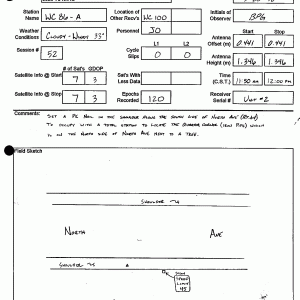 Station Name WC BG-A
Location of Other Recv's WC 100
Initials of Observer BPG
Weather Conditions Cloudy - Windy 33°
Personnel JO
Start Stop
Antenna Offset (m) 0.441 0.441
Session # 52
L1 L2
Cycle Slips 0 0
Antenna Height (m) 1.346 1.346
# of Sat's GDOP
Satellite Info @ Start 7 3
Sat's With Less Data
Time (C.S.T.) 11:50 AM 12:00 PM
Satellite Info @ Stop 7 3
Epochs Recorded 120
Receiver Serial # Unit #2
Comments: Set a PK Nail in the shoulder along the south side of North Ave
to occupy with a total station to locate the quarter corner
is on the north side of North Ave next to a tree.
Field Sketch
Shoulder
North Ave
Shoulder
Sign
Speed
Limit
45